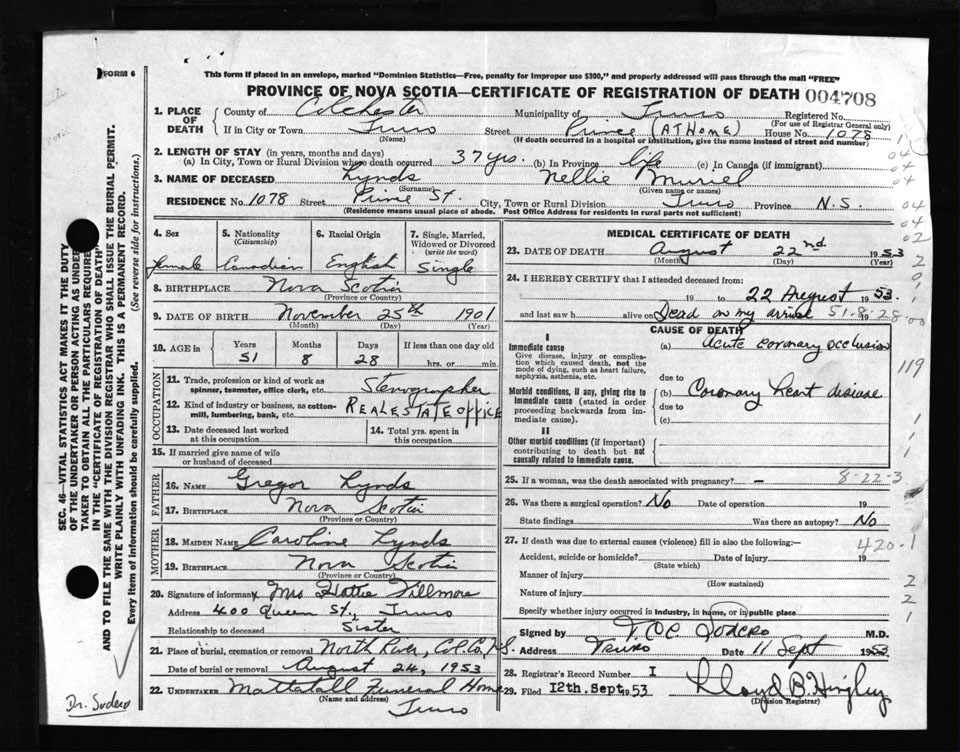 FORM 6
This form if placed in an envelope, marked "Dominion Statistics—Free, penalty for improper use $300," and properly addressed will pass through the mail "FREE"
PROVINCE OF NOVA SCOTIA—CERTIFICATE OF REGISTRATION OF DEATH 004708
1. PLACE OF DEATH
County of Colchester Municipality of Truro Registered No.
(For use of Registrar General only)
If in City or Town Truro Street Prince (AT HOME) House No. 1078
(Name) (If death occurred in a hospital or institution, give the name instead of street and number)
2. LENGTH OF STAY (in years, months and days)
(a) In City, Town or Rural Division where death occurred 37 yrs. (b) In Province life (c) In Canada (if immigrant)
3. NAME OF DECEASED Lynds Nellie Muriel
(Surname) (Given name or names)
RESIDENCE No. 1078 Street Prince St. City, Town or Rural Division Truro Province N.S.
(Residence means usual place of abode. Post Office Address for residents in rural parts not sufficient)
4. Sex 5. Nationality 6. Racial Origin 7. Single, Married, Widowed or Divorced
(Citizenship) (write the word)
female Canadian English Single
8. BIRTHPLACE Nova Scotia
(Province or Country)
9. DATE OF BIRTH November 25th 1901
(Month) (Day) (Year)
10. AGE in Years Months Days If less than one day old
51 8 28 hrs. or min.
OCCUPATION
11. Trade, profession or kind of work as spinner, teamster, office clerk, etc. Stenographer
12. Kind of industry or business, as cotton-mill, lumbering, bank, etc. REAL ESTATE OFFICE
13. Date deceased last worked at this occupation
14. Total yrs. spent in this occupation
15. If married give name of wife or husband of deceased
FATHER
16. NAME Gregor Lynds
17. BIRTHPLACE Nova Scotia
(Province or Country)
MOTHER
18. MAIDEN NAME Caroline Lynds
19. BIRTHPLACE Nova Scotia
(Province or Country)
20. Signature of informant x Mrs Hattie Fillmore
Address 400 Queen St., Truro
Relationship to deceased Sister
21. Place of burial, cremation or removal North River, Col. Co., N.S.
Date of burial or removal August 24, 1953
22. UNDERTAKER Mattatall Funeral Home
(Name and address) Truro
MEDICAL CERTIFICATE OF DEATH
23. DATE OF DEATH August 22nd 1953
(Month) (Day) (Year)
24. I HEREBY CERTIFY that I attended deceased from:
19 to 22 August 1953.
and last saw h alive on Dead on my arrival 19
51-8-28
CAUSE OF DEATH
I
Immediate cause (a) Acute coronary occlusion
Give disease, injury, or complication which caused death, not the mode of dying, such as heart failure, asphyxia, asthenia, etc.
due to
Morbid conditions, if any, giving rise to immediate cause (stated in order proceeding backwards from immediate cause). (b) Coronary heart disease
due to
(c)
II
Other morbid conditions (if important) contributing to death but not causally related to immediate cause.
119
25. If a woman, was the death associated with pregnancy? —
8-22-3
26. Was there a surgical operation? No Date of operation 19
State findings Was there an autopsy? No
27. If death was due to external causes (violence) fill in also the following:—
420-1
Accident, suicide or homicide? Date of injury 19
(State which)
Manner of injury
(How sustained)
Nature of injury
Specify whether injury occurred in industry, in home, or in public place
Signed by M.D.
Address Truro Date 11 Sept 1953
28. Registrar's Record Number I
29. Filed 12th. Sept 1953 Lloyd B. Hingley
(Division Registrar)
SEC. 46—VITAL STATISTICS ACT MAKES IT THE DUTY
OF THE UNDERTAKER OR PERSON ACTING AS UNDERTAKER TO OBTAIN ALL THE PARTICULARS REQUIRED
IN THE "CERTIFICATE OF REGISTRATION OF DEATH"
AND TO FILE THE SAME WITH THE DIVISION REGISTRAR WHO SHALL ISSUE THE BURIAL PERMIT.
WRITE PLAINLY WITH UNFADING INK. THIS IS A PERMANENT RECORD.
Every item of information should be carefully supplied. (See reverse side for instructions.)
Dr. Sodero